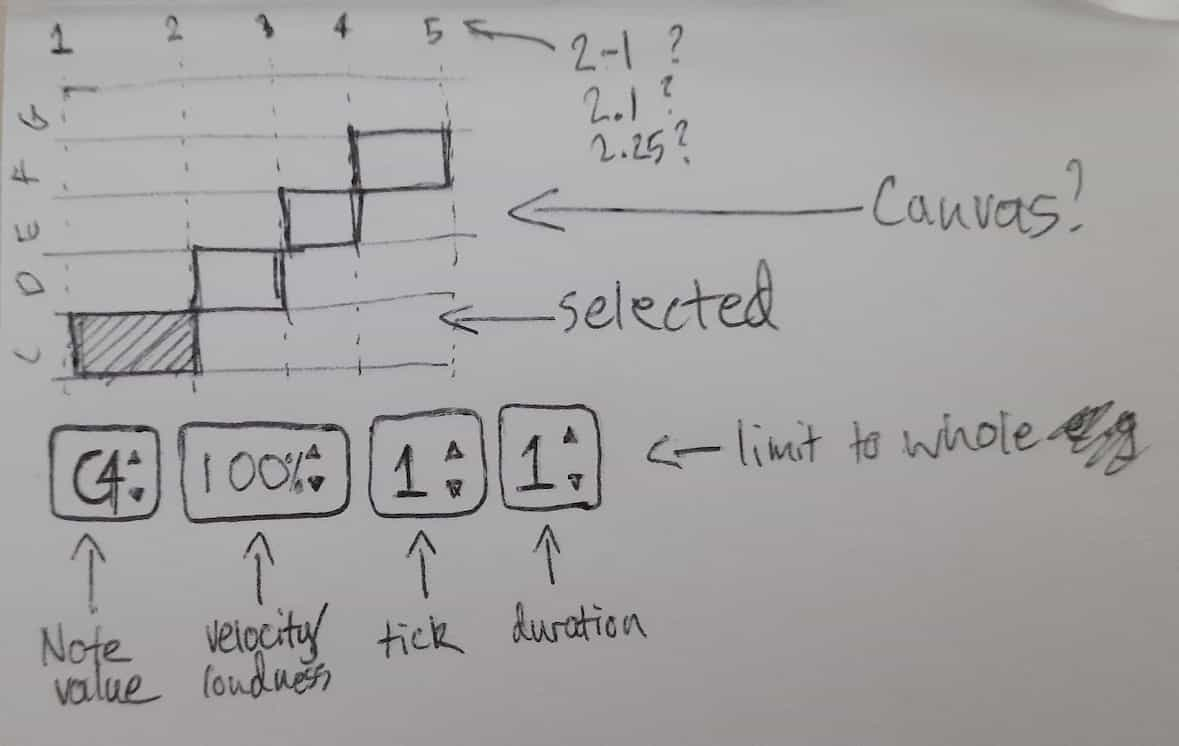 1 2 3 4 5
2-1 ?
2.1 ?
2.25?
G
F
E
D
C
Canvas?
selected
C4
100%
1
1
limit to whole
Note value
velocity/
loudness
tick
duration